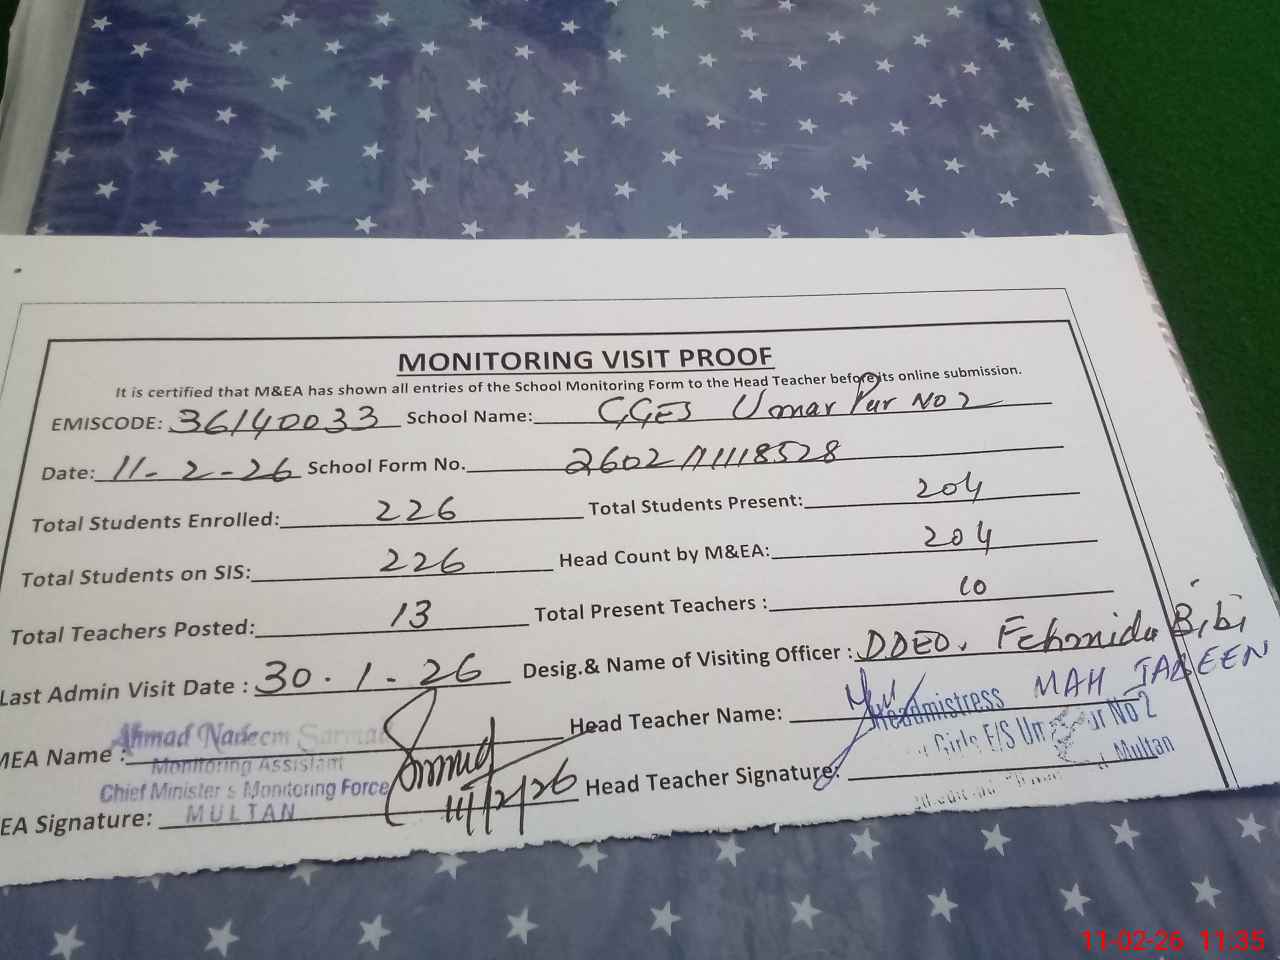 MONITORING VISIT PROOF
It is certified that M&EA has shown all entries of the School Monitoring Form to the Head Teacher before its online submission.
EMISCODE: 36140033 School Name: GGES Umar Pur No 2
Date: 11-2-26 School Form No.
Total Students Enrolled: 226 Total Students Present: 204
Total Students on SIS: 226 Head Count by M&EA: 204
Total Teachers Posted: 13 Total Present Teachers : 10
Last Admin Visit Date : 30.1.26 Desig.& Name of Visiting Officer : DDEO. Fehmida Bibi
MEA Name : Ahmad Nadeem Sarmad Head Teacher Name: MAH JABEEN
Monitoring Assistant
Chief Minister s Monitoring Force
MULTAN
Headmistress
Girls E/S Um ur No 2
Multan
EA Signature: 11/2/26 Head Teacher Signature:
11-02-26 11:35